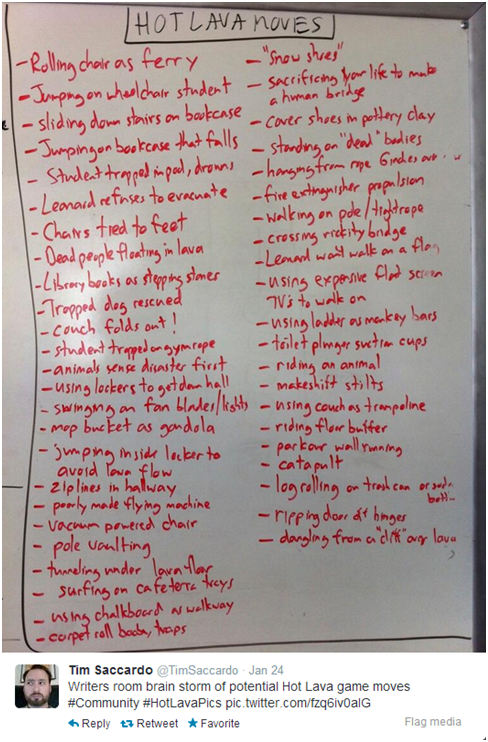 HOT LAVA MOVES
- Rolling chair as ferry
- Jumping on wheelchair student
- sliding down stairs on bookcase
- Jumping on bookcase that falls
- Student trapped in pool, drowns
- Leonard refuses to evacuate
- Chairs tied to feet
- Dead people floating in lava
- Library books as stepping stones
- Trapped dog rescued
- couch folds out!
- student trapped on gym rope
- animals sense disaster first
- using lockers to get down hall
- swinging on fan blades/lights
- mop bucket as gondola
- jumping inside locker to
avoid lava flow
- ziplines in hallway
- poorly made flying machine
- vacuum powered chair
- pole vaulting
- tunneling under lava floor
- surfing on cafeteria trays
- using chalkboard as walkway
- carpet roll booby traps
- "snow shoes"
- sacrificing your life to make
a human bridge
- cover shoes in pottery clay
- standing on "dead" bodies
- hanging from rope 6 inches over
- fire extinguisher propulsion
- walking on pole/tightrope
- crossing rickity bridge
- Leonard won't walk on a flag
- using expensive flat screen
TV's to walk on
- using ladder as monkey bars
- toilet plunger suction cups
- riding an animal
- makeshift stilts
- using couch as trampoline
- riding floor buffer
- parkour wall running
- catapult
- log rolling on trash can or soda
- ripping door off hinges
- dangling from a "cliff" over lava
Tim Saccardo @TimSaccardo · Jan 24
Writers room brain storm of potential Hot Lava game moves
#Community #HotLavaPics pic.twitter.com/fzq6iv0alG
Reply Retweet Favorite Flag media